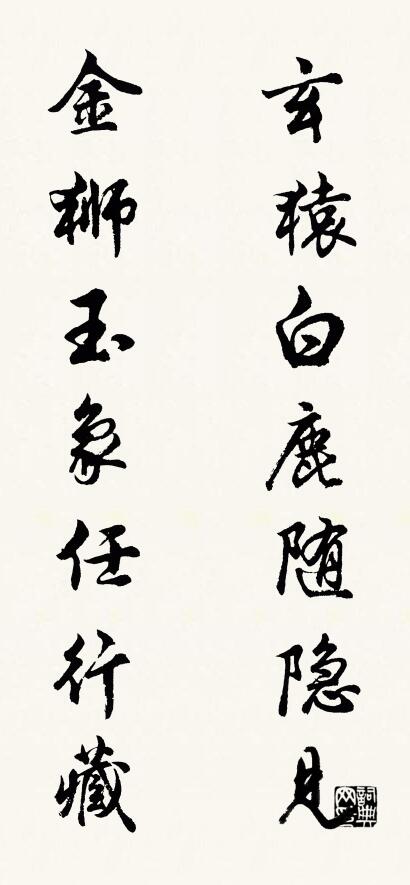 玄猿白鹿随隐见
金狮玉象任行藏
詞典网